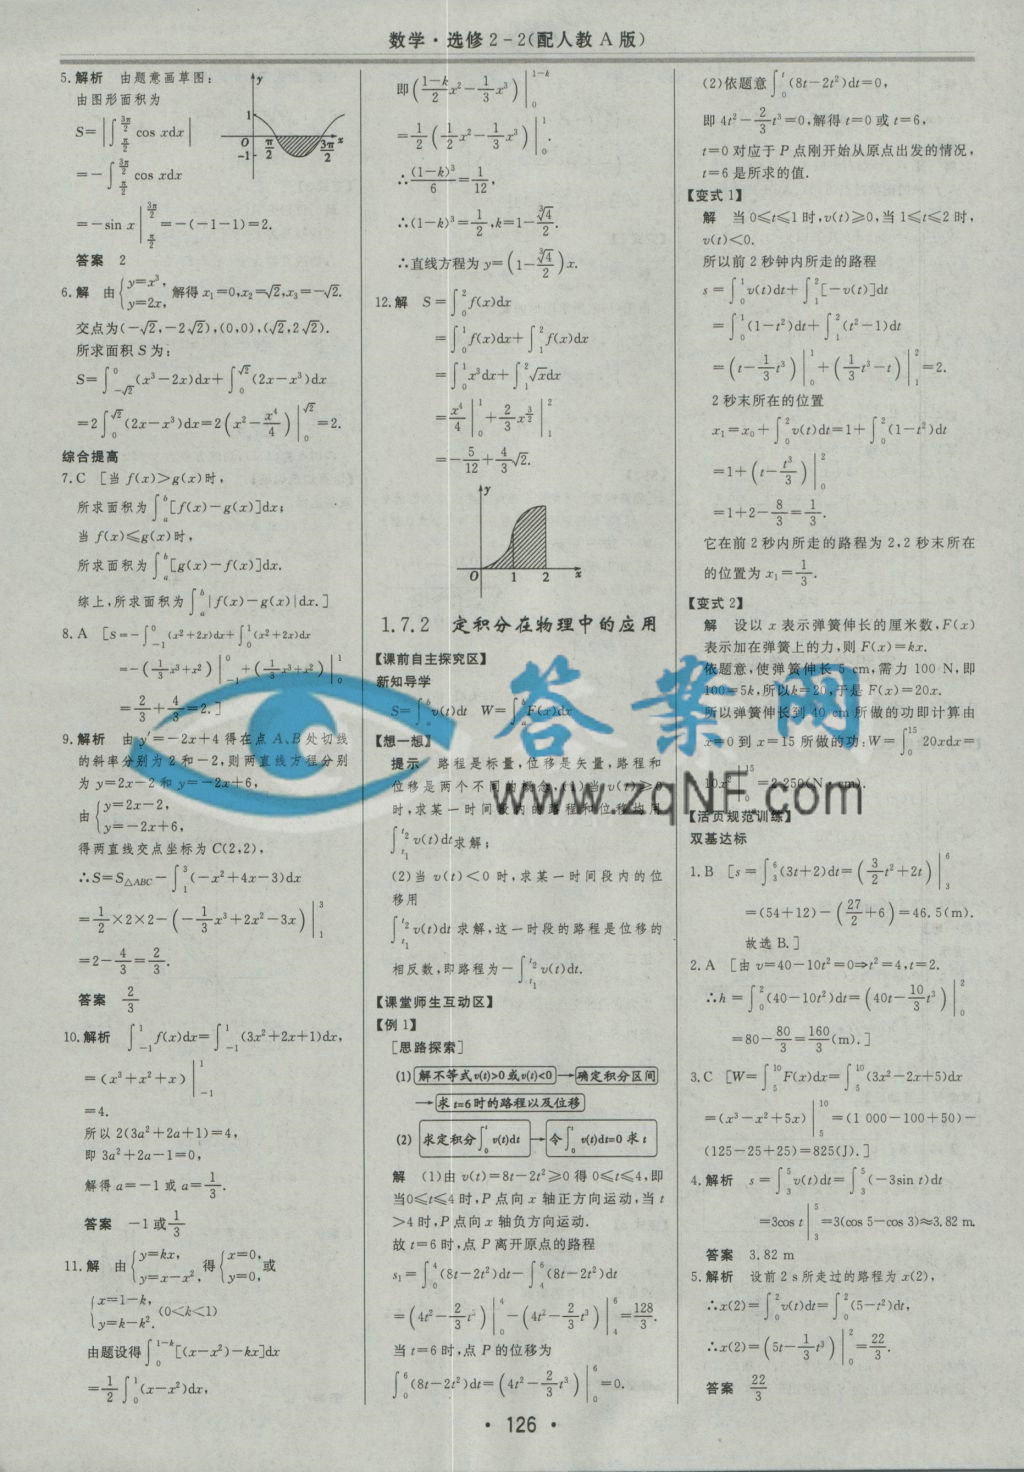 数学·选修2-2(配人教A版)
5.解析 由题意画草图:
由图形面积为
S=|∫_{π/2}^{3π/2} cos xdx|
=-∫_{π/2}^{3π/2} cos xdx
=-sin x|_{π/2}^{3π/2}=-(-1-1)=2.
y
1
O
-1
π/2
3π/2
x
答案 2
6.解 由{y=x³, y=2x, 解得x₁=0,x₂=√2,x₃=-√2.
交点为(-√2,-2√2),(0,0),(√2,2√2).
所求面积S为:
S=∫_{-√2}^{0}(x³-2x)dx+∫_{0}^{√2}(2x-x³)dx
=2∫_{0}^{√2}(2x-x³)dx=2(x²-x⁴/4)|_{0}^{√2}=2.
综合提高
7.C [当f(x)>g(x)时,
所求面积为∫_{a}^{b}[f(x)-g(x)]dx;
当f(x)≤g(x)时,
所求面积为∫_{a}^{b}[g(x)-f(x)]dx.
综上,所求面积为∫_{a}^{b}|f(x)-g(x)|dx.]
8.A [S=-∫_{-1}^{0}(x²+2x)dx+∫_{0}^{1}(x²+2x)dx
=-(1/3x³+x²)|_{-1}^{0}+(1/3x³+x²)|_{0}^{1}
=2/3+4/3=2.]
9.解析 由y′=-2x+4得在点A、B处切线
的斜率分别为2和-2,则两直线方程分别
为y=2x-2和y=-2x+6,
由{y=2x-2, y=-2x+6,
得两直线交点坐标为C(2,2),
∴S=S△ABC-∫_{1}^{3}(-x²+4x-3)dx
=1/2×2×2-(-1/3x³+2x²-3x)|_{1}^{3}
=2-4/3=2/3.
答案 2/3
10.解析 ∫_{-1}^{1}f(x)dx=∫_{-1}^{1}(3x²+2x+1)dx,
=(x³+x²+x)|_{-1}^{1}
=4.
所以2(3a²+2a+1)=4,
即3a²+2a-1=0,
解得a=-1或a=1/3.
答案 -1或1/3
11.解 由{y=kx, y=x-x², 得{x=0, y=0, 或
{x=1-k, y=k-k². (0<k<1)
由题设得∫_{0}^{1-k}[(x-x²)-kx]dx
=1/2∫_{0}^{1}(x-x²)dx,
即((1-k)/2 x²-1/3x³)|_{0}^{1-k}
=1/2(1/2x²-1/3x³)|_{0}^{1}.
∴(1-k)³/6=1/12,
∴(1-k)³=1/2,k=1-∛4/2.
∴直线方程为y=(1-∛4/2)x.
12.解 S=∫_{0}^{2}f(x)dx
=∫_{0}^{1}f(x)dx+∫_{1}^{2}f(x)dx
=∫_{0}^{1}x³dx+∫_{1}^{2}√xdx
=x⁴/4|_{0}^{1}+2/3x^{3/2}|_{1}^{2}
=-5/12+4/3√2.
y
O 1 2 x
1.7.2 定积分在物理中的应用
【课前自主探究区】
新知导学
S=∫_{a}^{b}v(t)dt W=∫_{a}^{b}F(x)dx
【想一想】
提示 路程是标量,位移是矢量,路程和
位移是两个不同的概念.(1)当v(t)≥0
时,求某一时间段内的路程和位移均用
∫_{t₁}^{t₂}v(t)dt求解;
(2)当v(t)<0时,求某一时间段内的位
移用
∫_{t₁}^{t₂}v(t)dt求解,这一时段的路程是位移的
相反数,即路程为-∫_{t₁}^{t₂}v(t)dt.
【课堂师生互动区】
【例1】
[思路探索]
(1)解不等式v(t)>0或v(t)<0→确定积分区间
→求t=6时的路程以及位移
(2)求定积分∫_{0}^{t}v(t)dt→令∫_{0}^{t}v(t)dt=0求t
解 (1)由v(t)=8t-2t²≥0得0≤t≤4,即
当0≤t≤4时,P点向x轴正方向运动,当t
>4时,P点向x轴负方向运动.
故t=6时,点P离开原点的路程
s₁=∫_{0}^{4}(8t-2t²)dt-∫_{4}^{6}(8t-2t²)dt
=(4t²-2/3t³)|_{0}^{4}-(4t²-2/3t³)|_{4}^{6}=128/3.
当t=6时,点P的位移为
∫_{0}^{6}(8t-2t²)dt=(4t²-2/3t³)|_{0}^{6}=0.
(2)依题意∫_{0}^{t}(8t-2t²)dt=0,
即4t²-2/3t³=0,解得t=0或t=6,
t=0对应于P点刚开始从原点出发的情况,
t=6是所求的值.
【变式1】
解 当0≤t≤1时,v(t)≥0,当1≤t≤2时,
v(t)<0.
所以前2秒钟内所走的路程
s=∫_{0}^{1}v(t)dt+∫_{1}^{2}[-v(t)]dt
=∫_{0}^{1}(1-t²)dt+∫_{1}^{2}(t²-1)dt
=(t-1/3t³)|_{0}^{1}+(1/3t³-t)|_{1}^{2}=2.
2秒末所在的位置
x₁=x₀+∫_{0}^{2}v(t)dt=1+∫_{0}^{2}(1-t²)dt
=1+(t-t³/3)|_{0}^{2}
=1+2-8/3=1/3.
它在前2秒内所走的路程为2,2秒末所在
的位置为x₁=1/3.
【变式2】
解 设以x表示弹簧伸长的厘米数,F(x)
表示加在弹簧上的力,则F(x)=kx.
依题意,使弹簧伸长5 cm,需力100 N,即
100=5k,所以k=20,于是F(x)=20x.
所以弹簧伸长到40 cm所做的功即计算由
x=0到x=15所做的功:W=∫_{0}^{15}20xdx=
10x²|_{0}^{15}=2 250(N·cm).
【活页规范训练】
双基达标
1.B [s=∫_{3}^{6}(3t+2)dt=(3/2t²+2t)|_{3}^{6}
=(54+12)-(27/2+6)=46.5(m).
故选B.]
2.A [由v=40-10t²=0⇒t²=4,t=2.
∴h=∫_{0}^{2}(40-10t²)dt=(40t-10/3t³)|_{0}^{2}
=80-80/3=160/3(m).]
3.C [W=∫_{5}^{10}F(x)dx=∫_{5}^{10}(3x²-2x+5)dx
=(x³-x²+5x)|_{5}^{10}=(1 000-100+50)-
(125-25+25)=825(J).]
4.解析 s=∫_{3}^{5}v(t)dt=∫_{3}^{5}(-3sin t)dt
=3cos t|_{3}^{5}=3(cos 5-cos 3)≈3.82 m.
答案 3.82 m
5.解析 设前2 s所走过的路程为x(2),
∴x(2)=∫_{0}^{2}v(t)dt=∫_{0}^{2}(5-t²)dt,
∴x(2)=(5t-1/3t³)|_{0}^{2}=22/3.
答案 22/3
·126·
答案网
www.zqNF.com